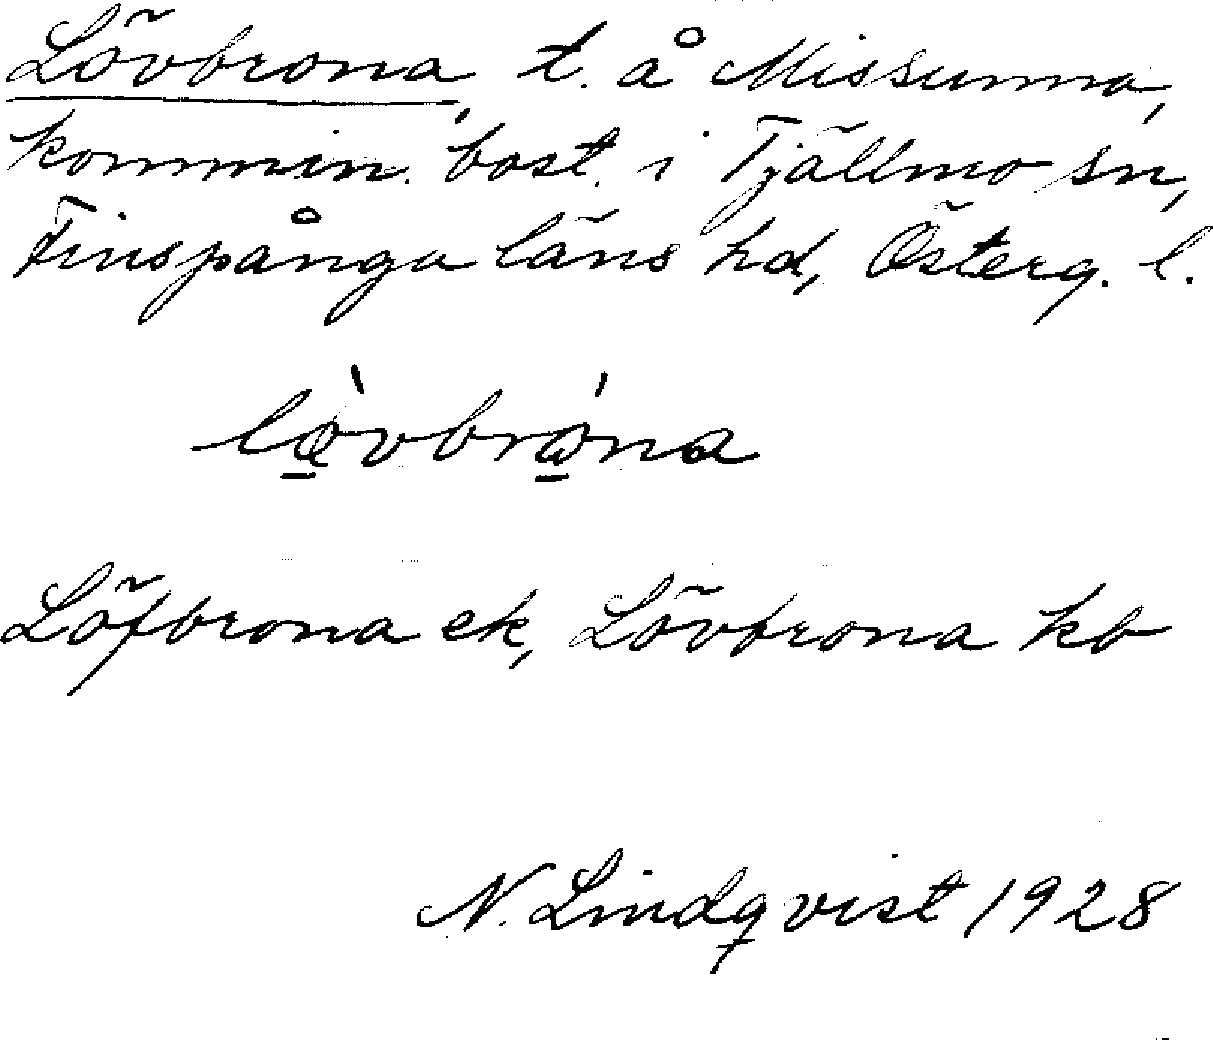 Lövbrona, t. å Missunna,
kommin. bost. i Tjällmo sn,
Finspånga läns hd, Österg. l.
Löfbrona ek, Lövbrona kb
N. Lindqvist 1928